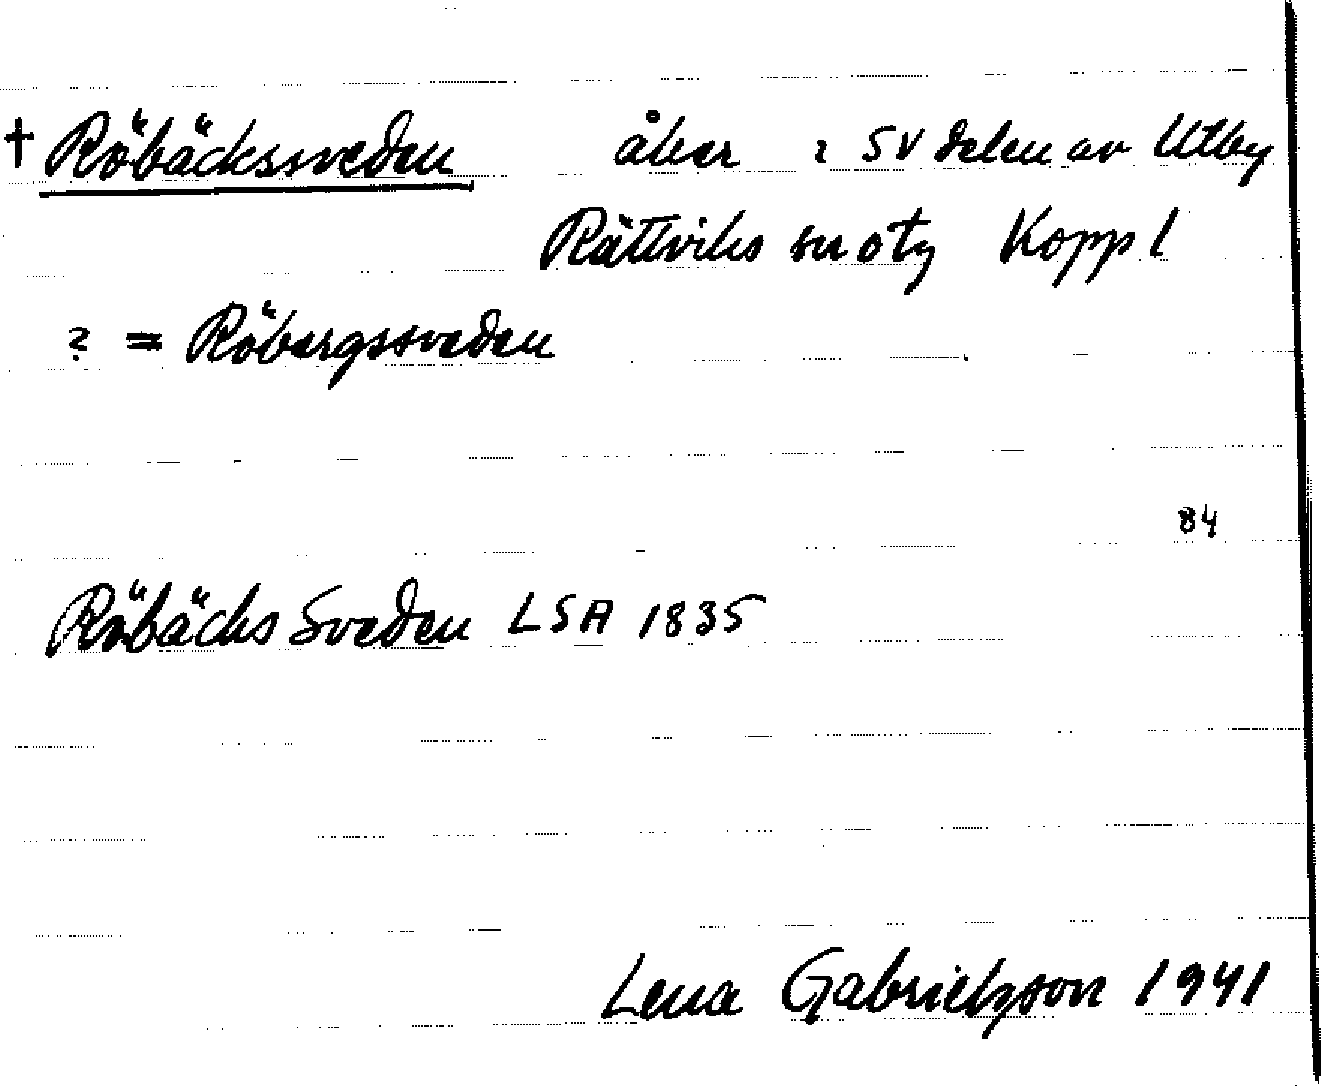 † Röbäckssveden åker i SV delen av Utby
Rättviks sn o tg Kopp l
? = Röbergssveden
84
Röbäcks Sveden LSA 1835
Lena Gabrielsson 1941